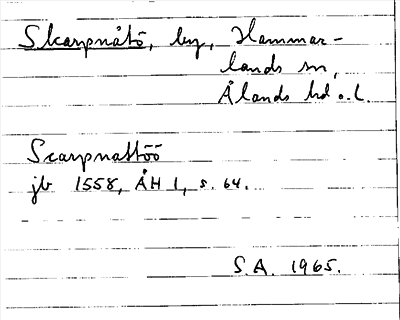 Skarpnåtö, by, Hammar-
lands sn,
Ålands hd o. l.
Scarpnattöö
jb 1558, ÅH 1, s. 64.
S.A. 1965.